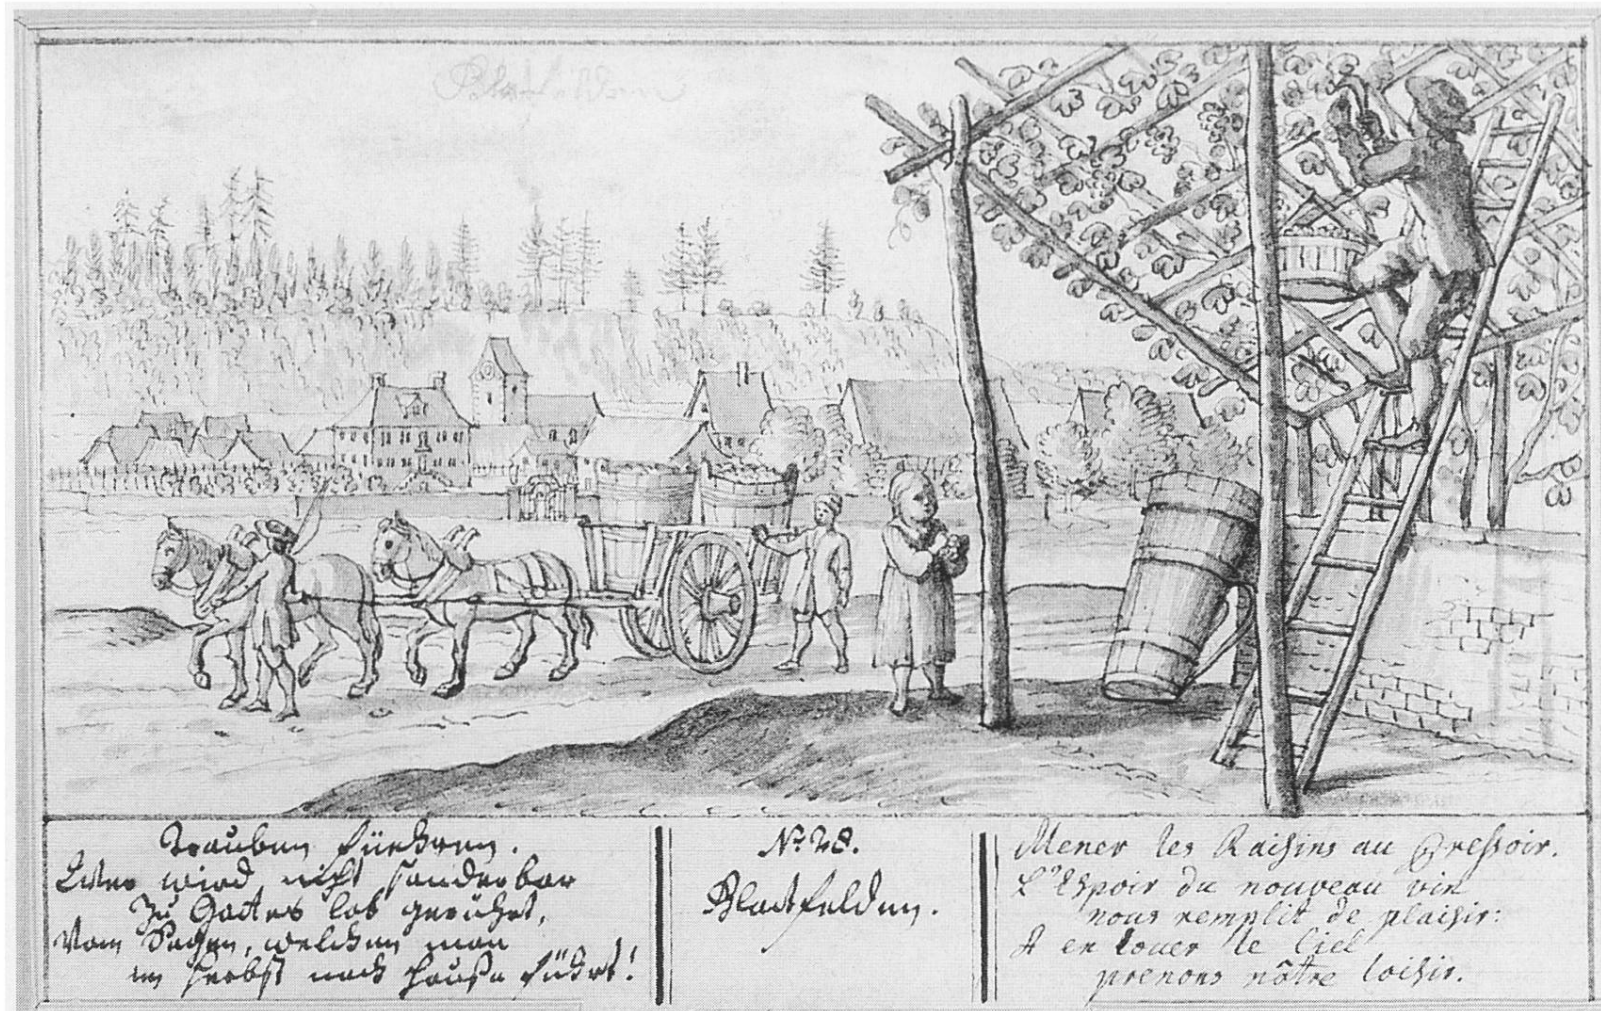 Trauben füehren.
Wer wird nicht sonderbar
Zu Gottes lob gerührt,
Vom Segen, welchen man
im Herbst nach Hause führt!
No. 28.
Glattfelden.
Mener les Raisins au Pressoir.
L'Espoir du nouveau vin
nous remplit de plaisir:
A en louer le Ciel
prenons nôtre loisir.